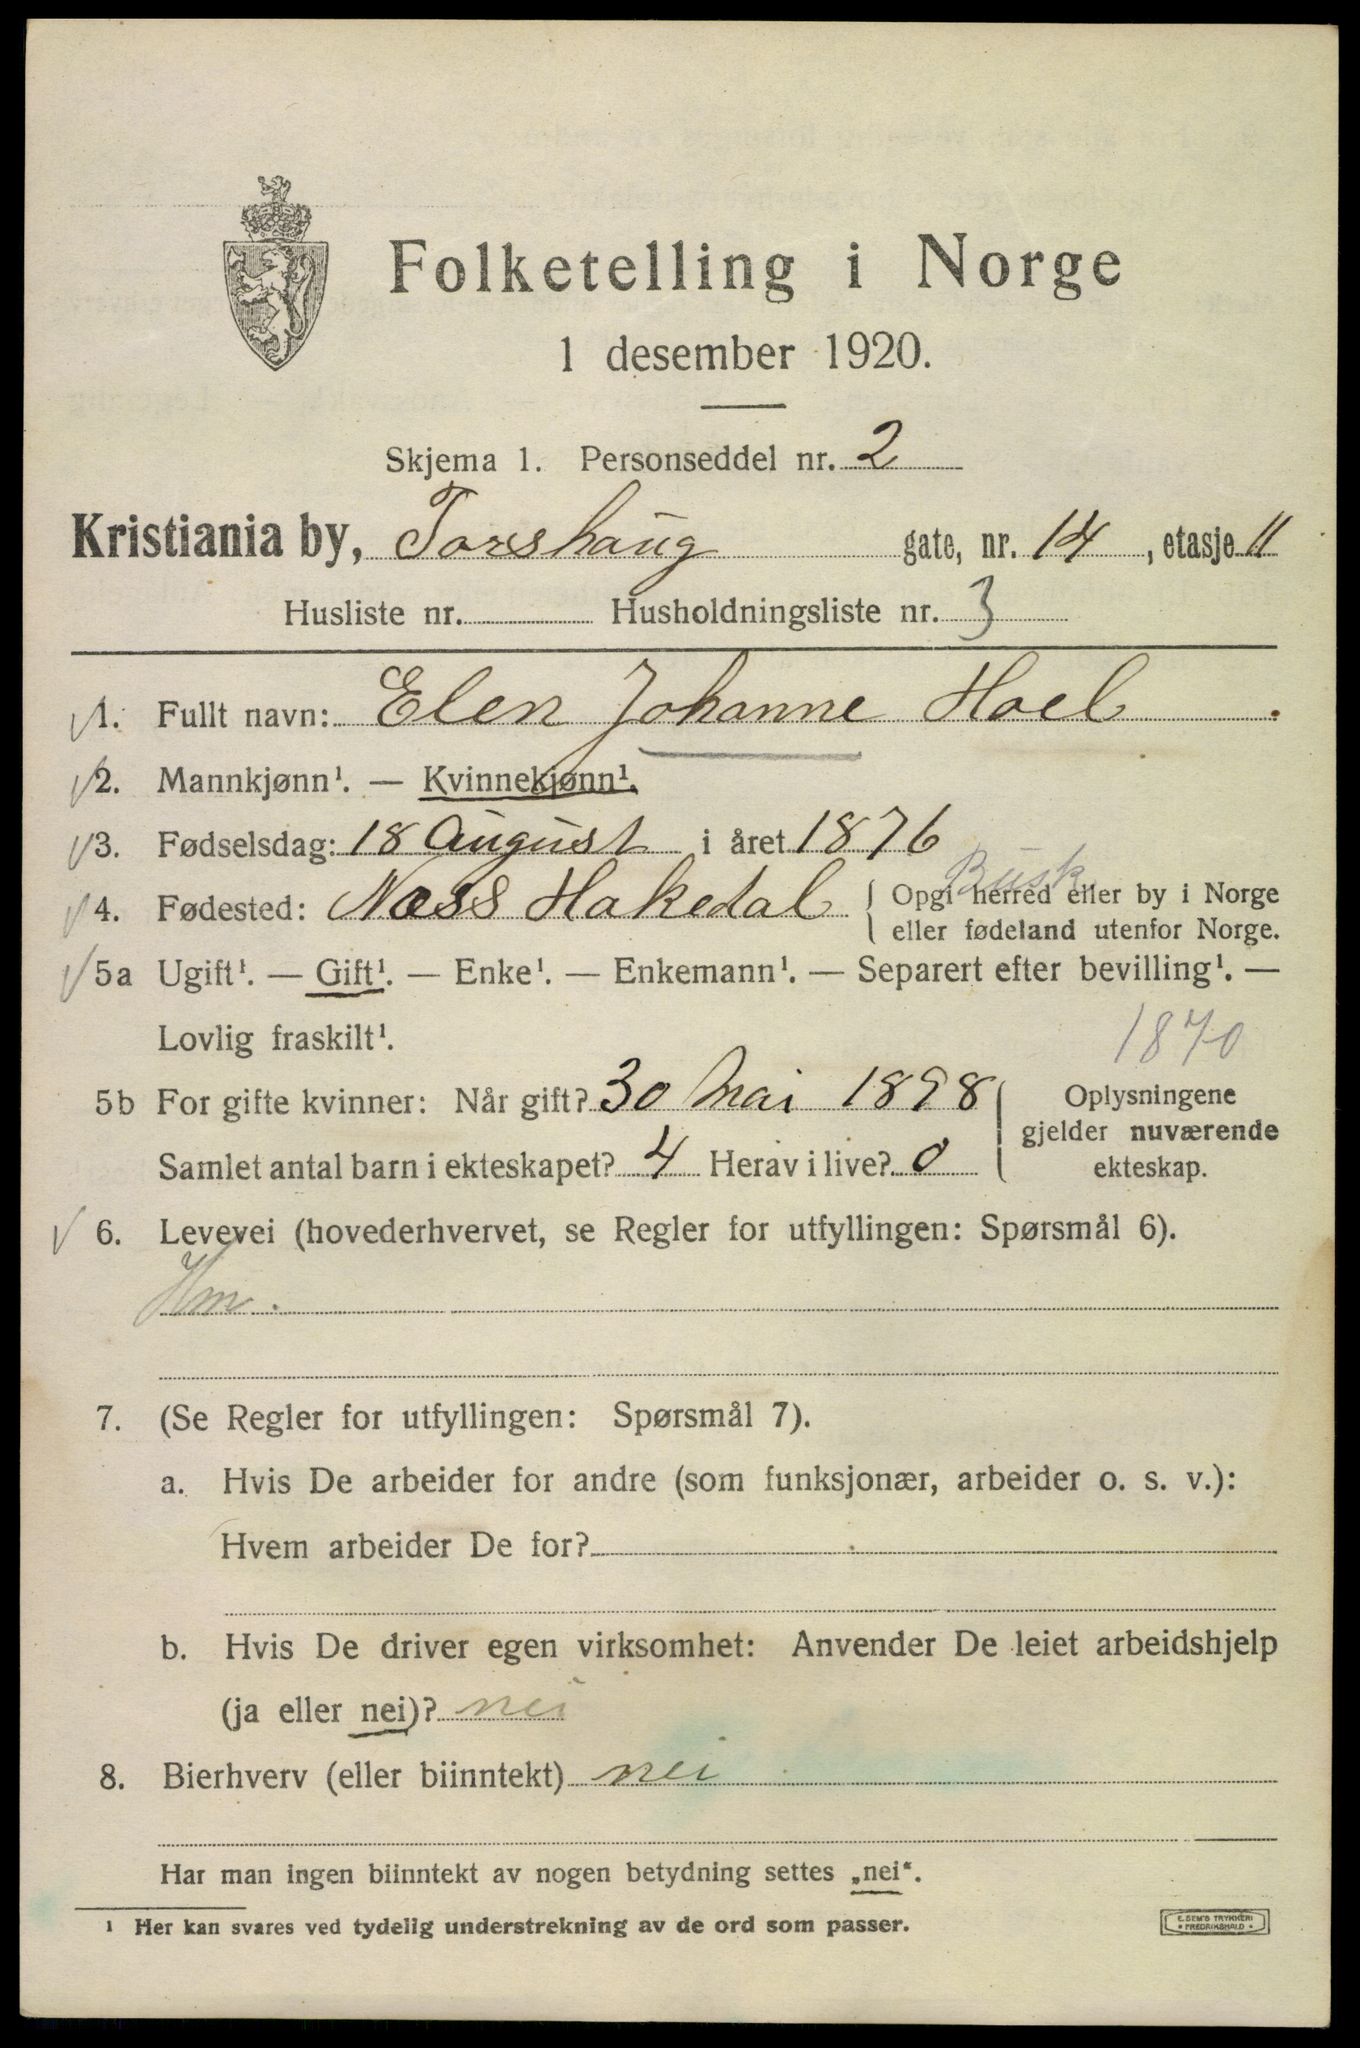 Folketelling i Norge
1 desember 1920.
Skjema 1. Personseddel nr. 2
Kristiania by, Torshaug gate, nr. 14, etasje II
Husliste nr. Husholdningsliste nr. 3
1. Fullt navn: Elen Johanne Hoel.
2. Mannkjønn¹. — Kvinnekjønn¹.
3. Fødselsdag: 18 August i året 1876
Busk
4. Fødested: Næss Hakedal { Opgi herred eller by i Norge
eller fødeland utenfor Norge.
5a Ugift¹. — Gift¹. — Enke¹. — Enkemann¹. — Separert efter bevilling¹. —
Lovlig fraskilt¹.
1870
5b For gifte kvinner: Når gift? 30 Mai 1898
Samlet antal barn i ekteskapet? 4 Herav i live? 0
Oplysningene
gjelder nuværende
ekteskap.
6. Levevei (hovederhvervet, se Regler for utfyllingen: Spørsmål 6).
Hm.
7. (Se Regler for utfyllingen: Spørsmål 7).
a. Hvis De arbeider for andre (som funksjonær, arbeider o. s. v.):
Hvem arbeider De for?
b. Hvis De driver egen virksomhet: Anvender De leiet arbeidshjelp
(ja eller nei)? nei
8. Bierhverv (eller biinntekt) nei
Har man ingen biinntekt av nogen betydning settes „nei“.
¹ Her kan svares ved tydelig understrekning av de ord som passer.
E. SEM'S TRYKKERI
FREDRIKSHALD